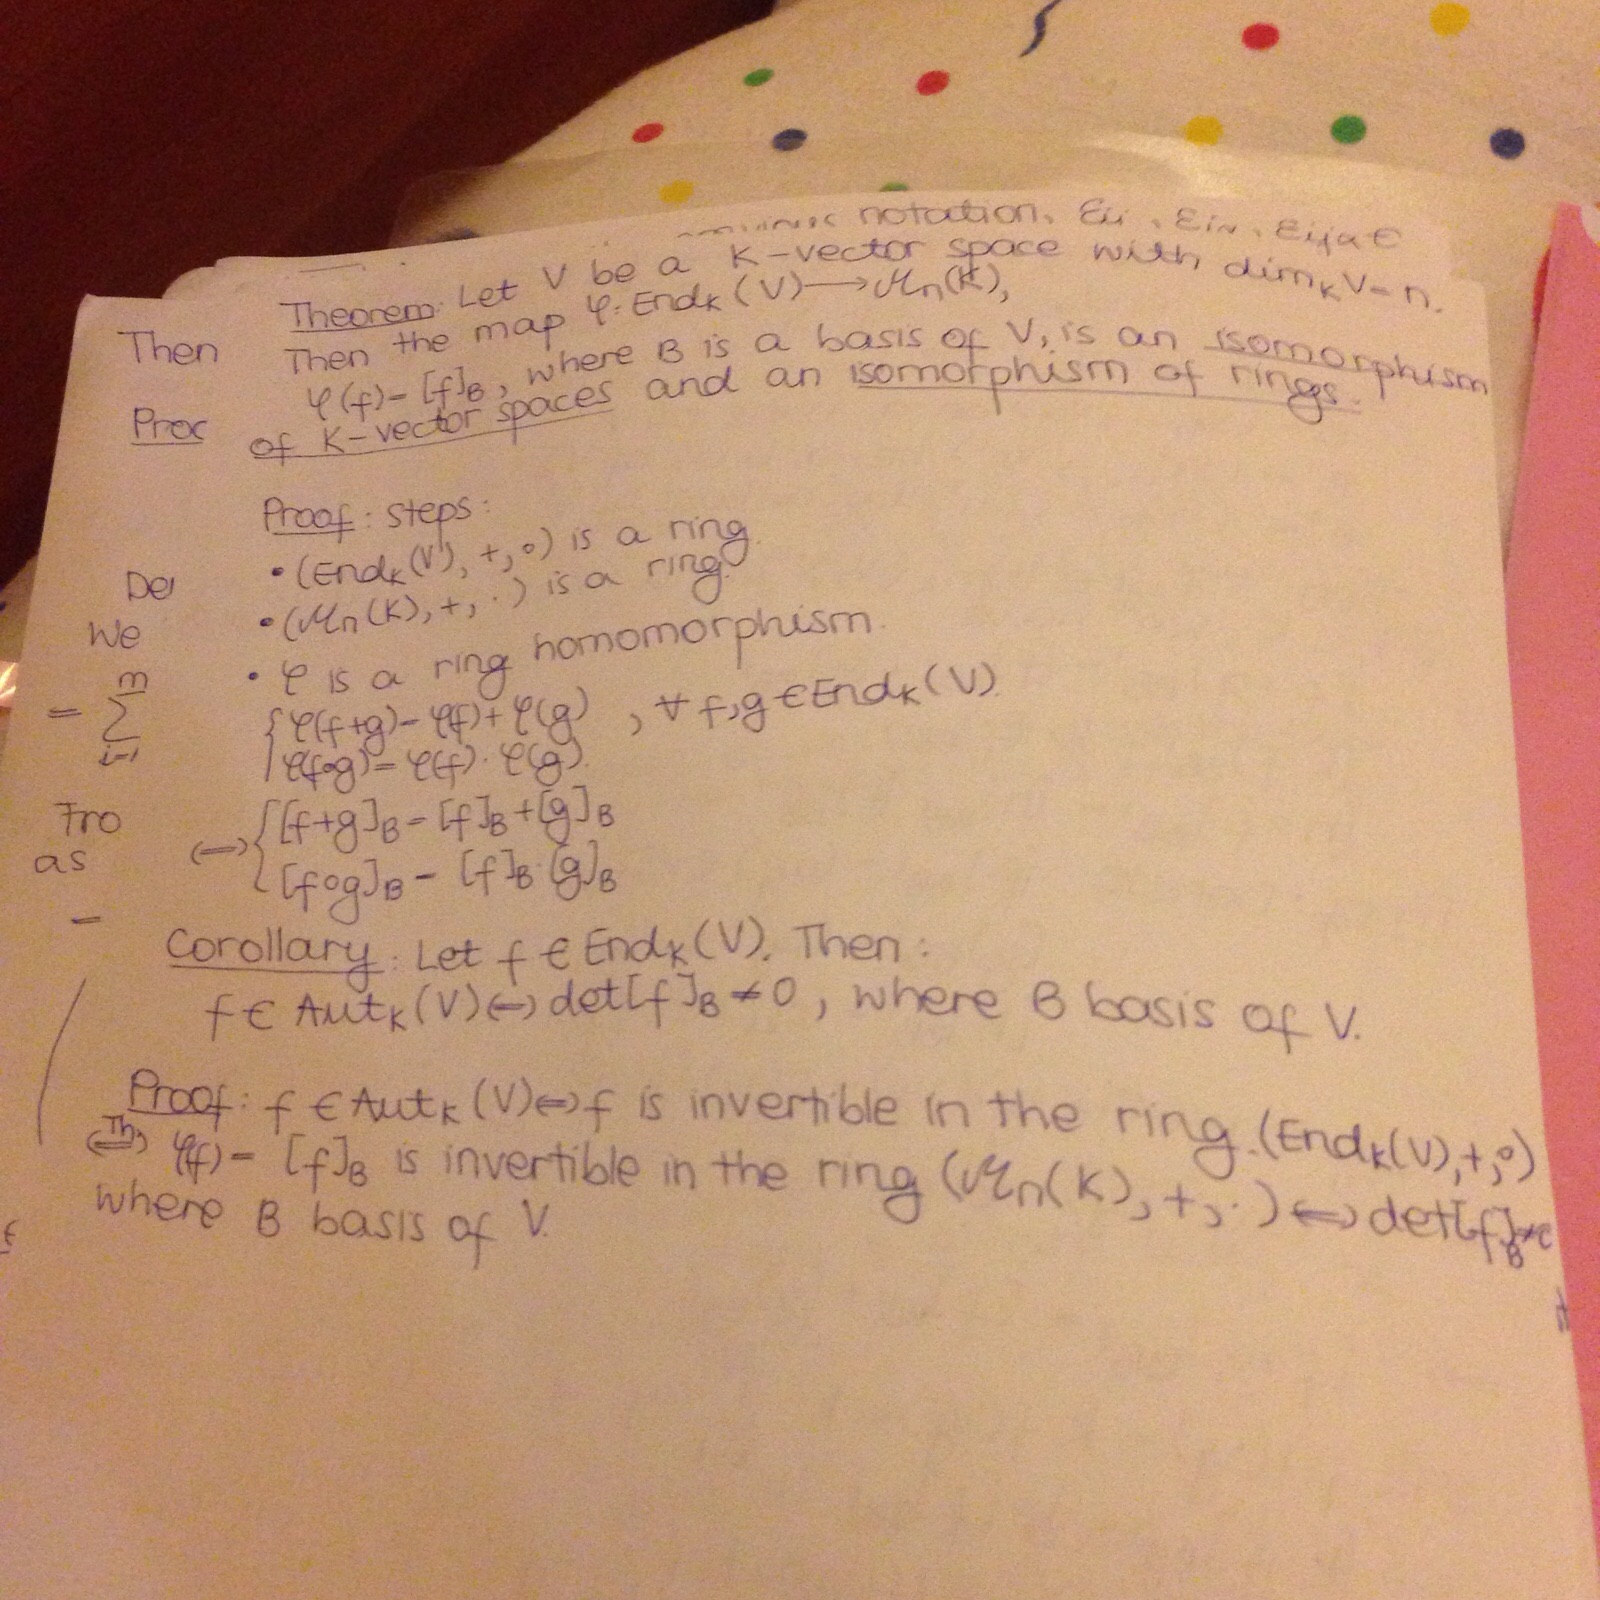 notation.
Theorem. Let V be a K-vector space with dimₖV=n.
Then the map φ: Endₖ(V)→ℳn(K),
φ(f)=[f]B, where B is a basis of V, is an isomorphism
of K-vector spaces and an isomorphism of rings.
Proof: steps:
• (Endₖ(V), +, ∘) is a ring.
• (ℳn(K), +, ·) is a ring.
• φ is a ring homomorphism.
{φ(f+g)=φ(f)+φ(g) , ∀ f,g ∈ Endₖ(V).
φ(f∘g)=φ(f)·φ(g).
⟺ {[f+g]B=[f]B+[g]B
[f∘g]B=[f]B·[g]B
Corollary: Let f ∈ Endₖ(V). Then:
f ∈ Autₖ(V)⟺det[f]B≠0, where B basis of V.
Proof: f ∈ Autₖ(V)⟺f is invertible in the ring (Endₖ(V),+,∘)
⟺Th φ(f)=[f]B is invertible in the ring (ℳn(K),+,·)⟺det[f]B≠
where B basis of V.
Then
Proc
We
= m∑i=1
Fro
as